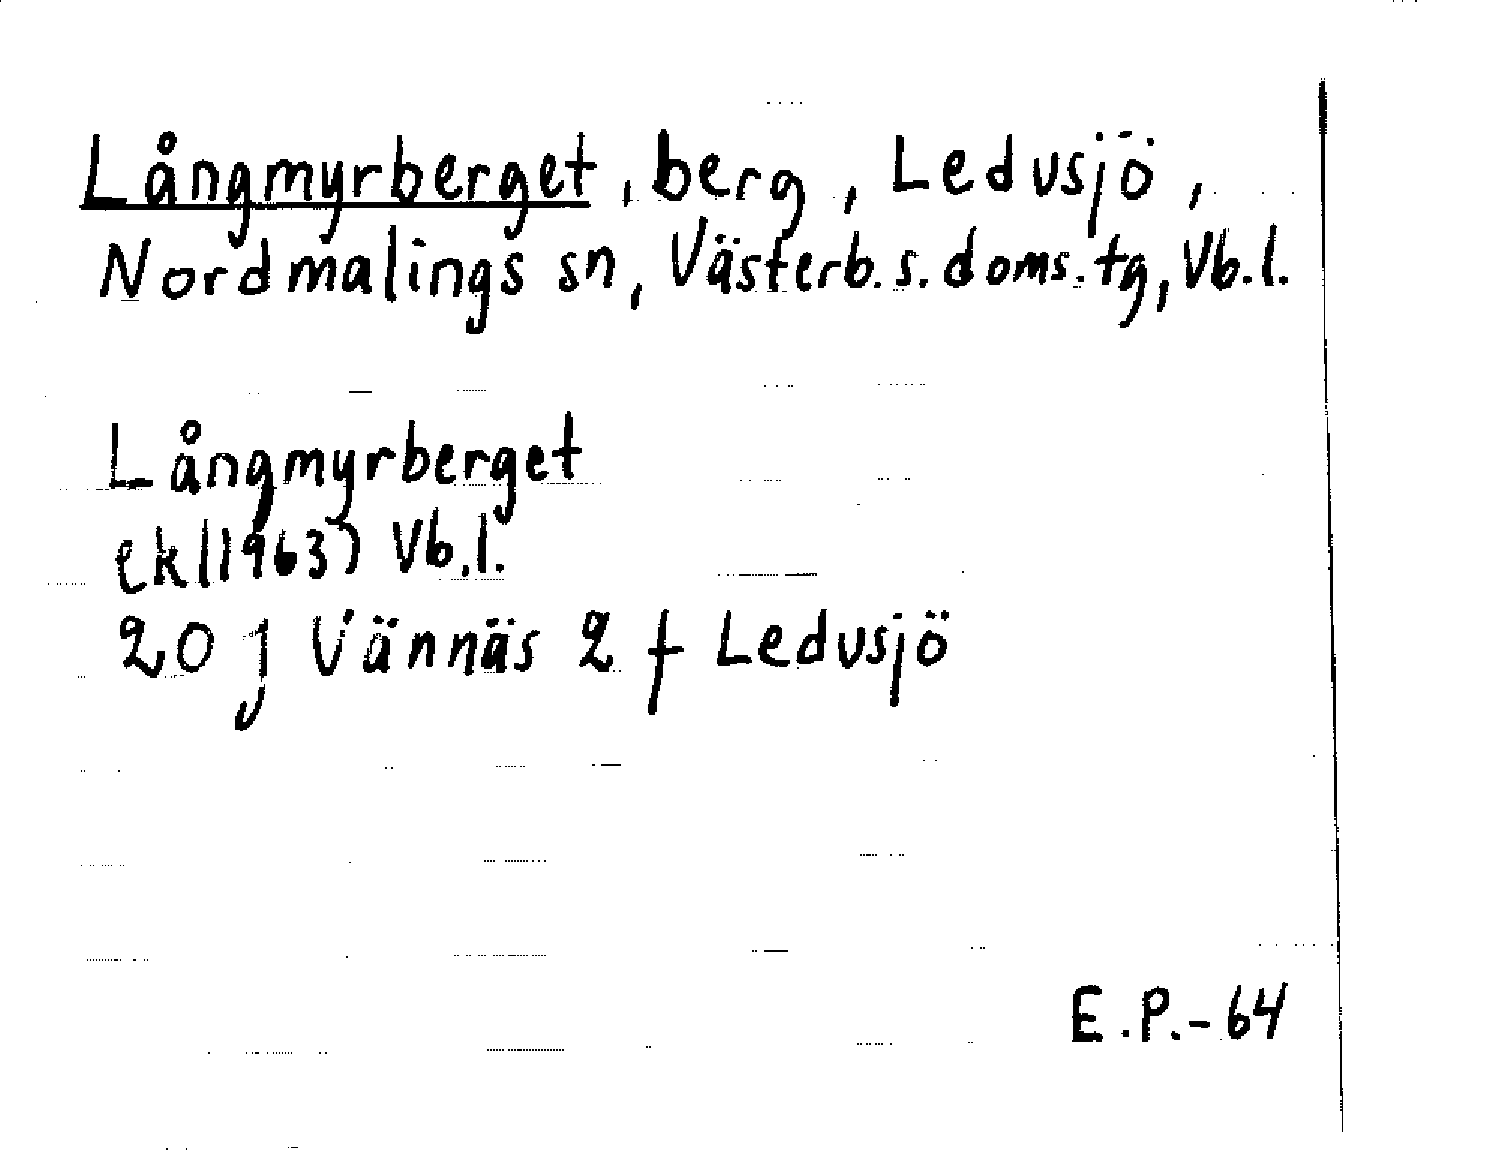 Långmyrberget, berg, Ledusjö,
Nordmalings sn, Västerb.s.doms.tg, Vb.l.
Långmyrberget
ek(1963) Vb.l.
20 J Vännäs 2 f Ledusjö
E.P.-64